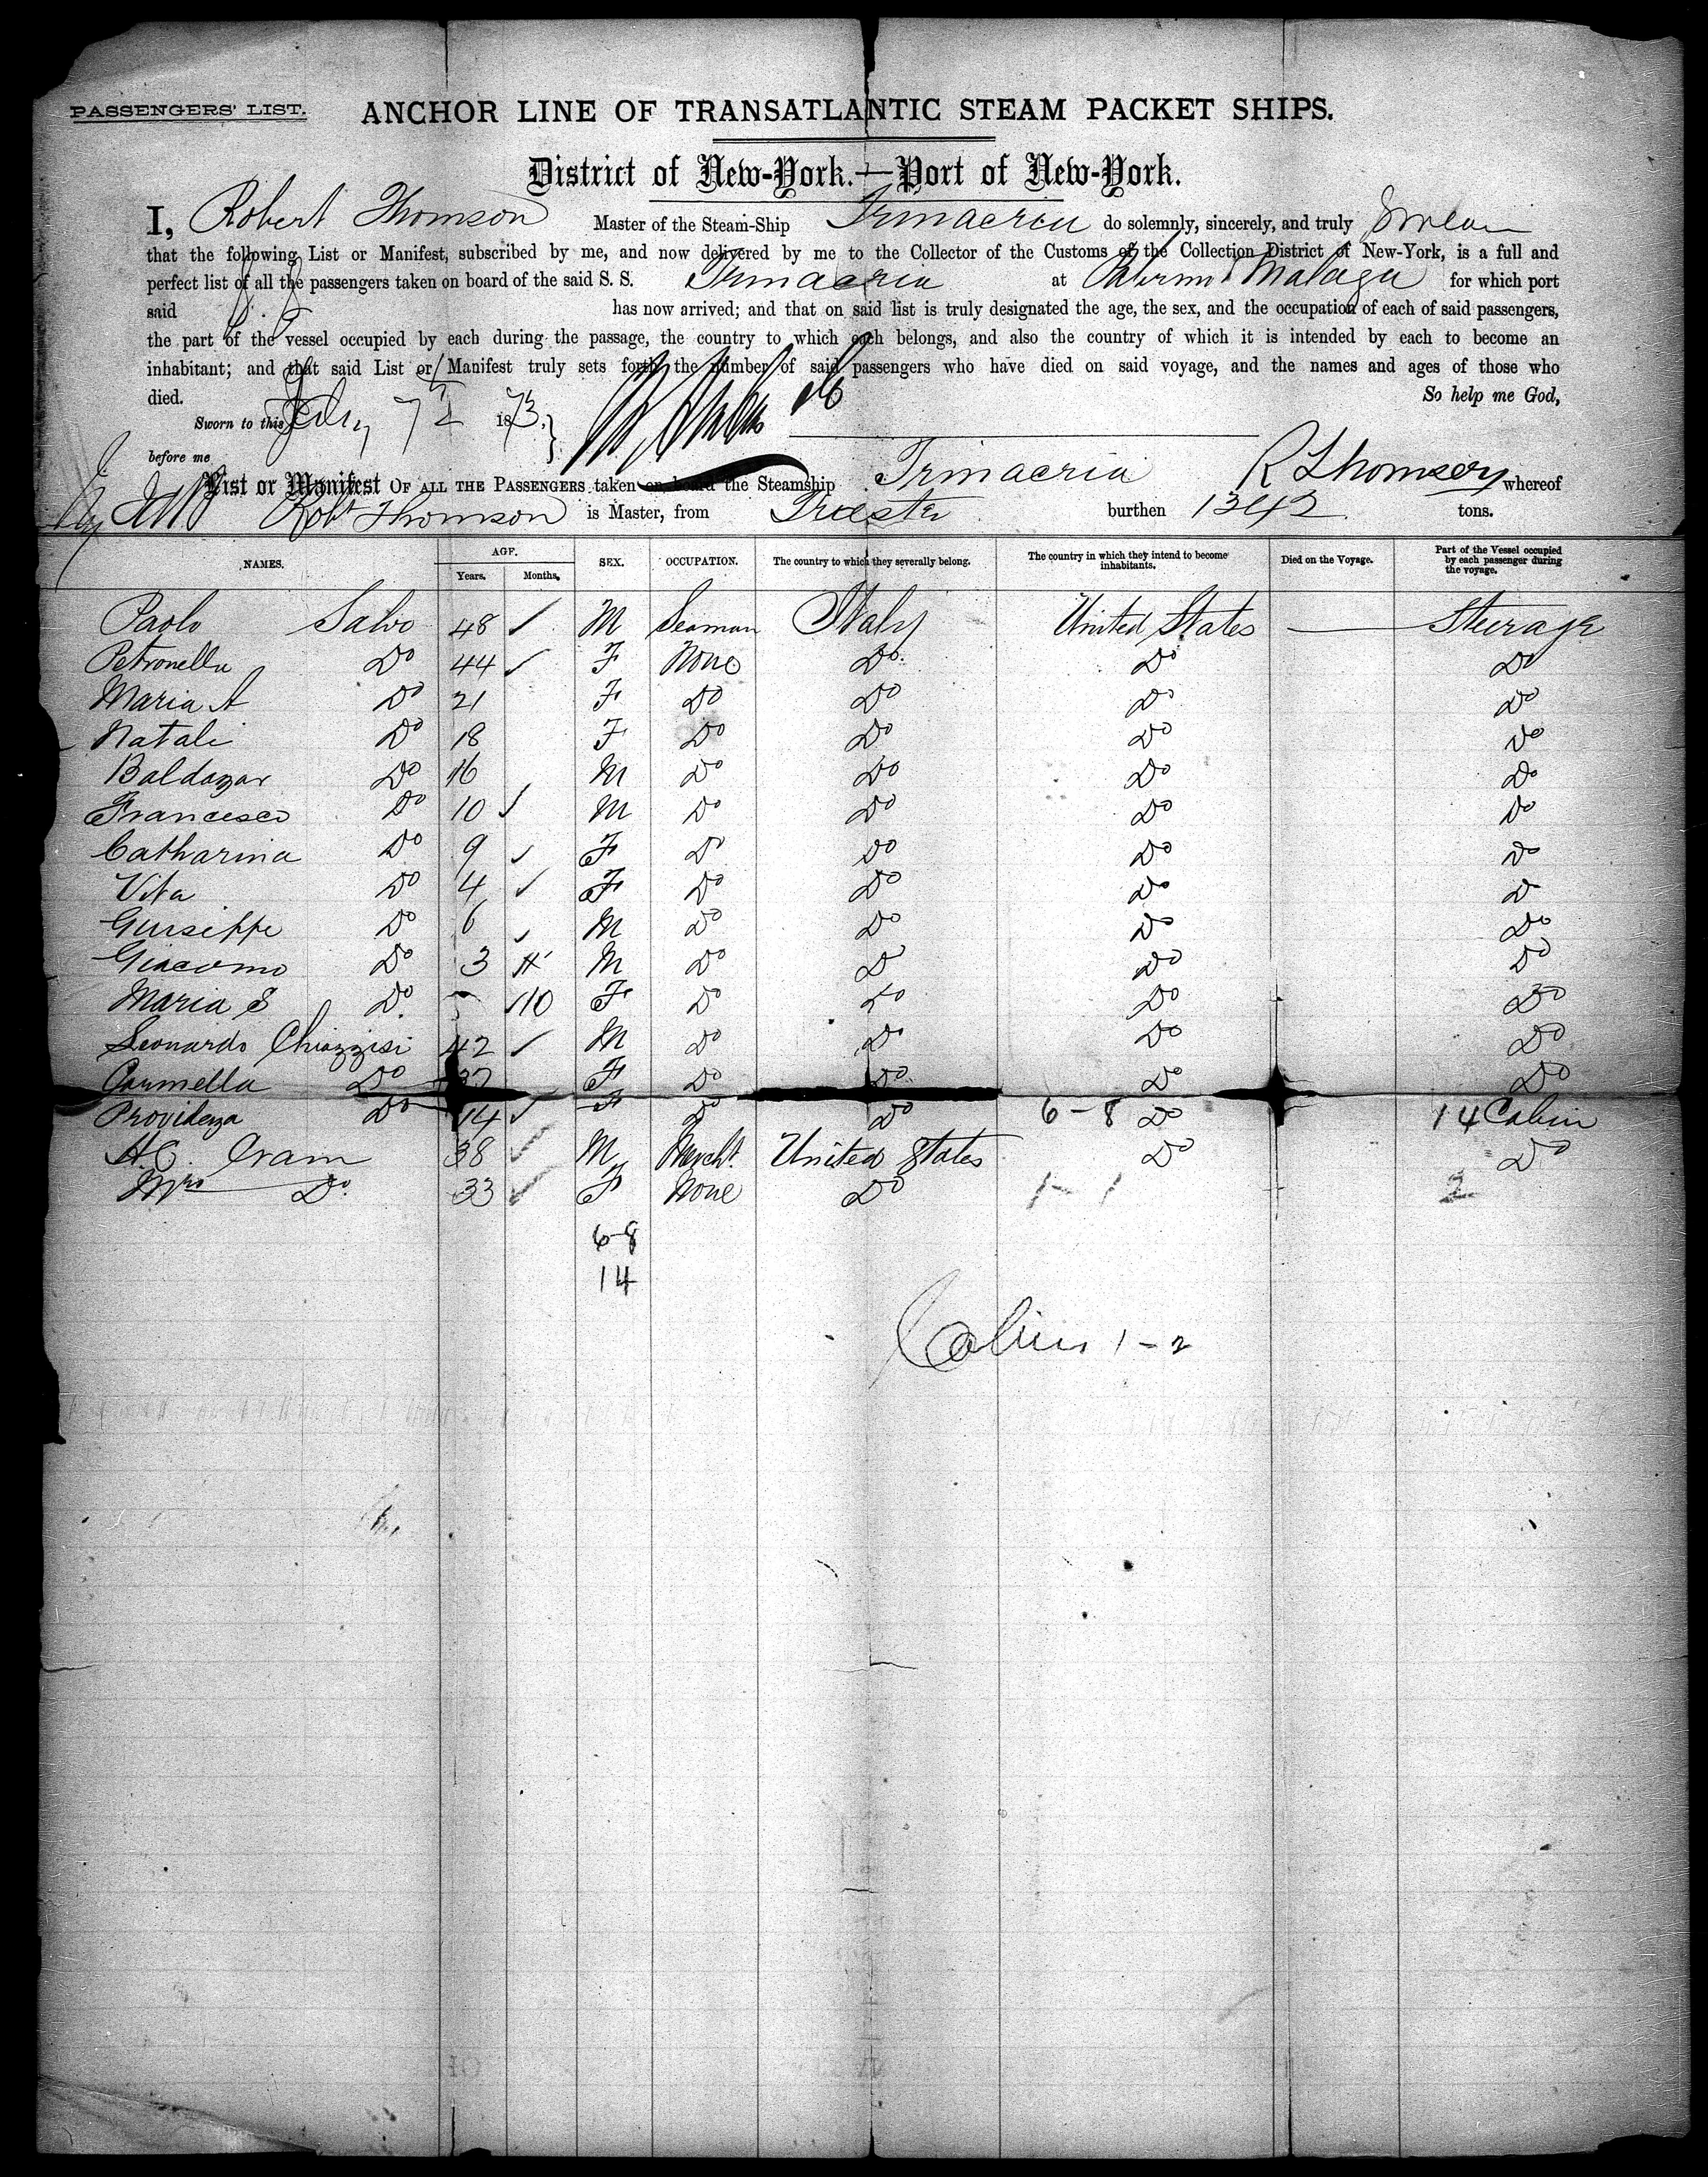 PASSENGERS' LIST. ANCHOR LINE OF TRANSATLANTIC STEAM PACKET SHIPS.
District of New-York.—Port of New-York.
I, Robert Thomson Master of the Steam-Ship Trinacria do solemnly, sincerely, and truly Swear
that the following List or Manifest, subscribed by me, and now delivered by me to the Collector of the Customs of the Collection District of New-York, is a full and
perfect list of all the passengers taken on board of the said S. S. Trinacria at Palermo & Malaga for which port
said has now arrived; and that on said list is truly designated the age, the sex, and the occupation of each of said passengers,
the part of the vessel occupied by each during the passage, the country to which each belongs, and also the country of which it is intended by each to become an
inhabitant; and that said List or Manifest truly sets forth the number of said passengers who have died on said voyage, and the names and ages of those who
died. So help me God,
Sworn to this July 7th 1873.}
before me
List or Manifest OF ALL THE PASSENGERS taken on board the Steamship Trinacria R Thomson whereof
Robt Thomson is Master, from Trieste burthen 1342 tons.
NAMES. AGE. Years. Months. SEX. OCCUPATION. The country to which they severally belong. The country in which they intend to become inhabitants. Died on the Voyage. Part of the Vessel occupied by each passenger during the voyage.
Paolo Salvo 48 ✓ M Seaman Italy United States — Steerage
Petronella Do 44 ✓ F None Do Do Do
Maria A Do 21 F Do Do Do Do
Natali Do 18 F Do Do Do Do
Baldazar Do 16 M Do Do Do Do
Francesco Do 10 ✓ M Do Do Do Do
Catharina Do 9 ✓ F Do Do Do Do
Vita Do 4 ✓ F Do Do Do Do
Guiseppe Do 6 ✓ M Do Do Do Do
Giacomo Do 3 M Do Do Do Do
Maria S Do ✓10 F Do Do Do Do
Leonardo Chiazzisi 42 ✓ M Do Do Do Do
Carmella Do F Do Do Do Do
Providenza Do 14 ✓ F Do Do 6-8 Do 14 Cabin
H.C. Cram 38 ✓ M Mercht. United States Do Do
Mrs Do 33 ✓ F None Do 1-1 2
6-8
14
Cabin 1-2